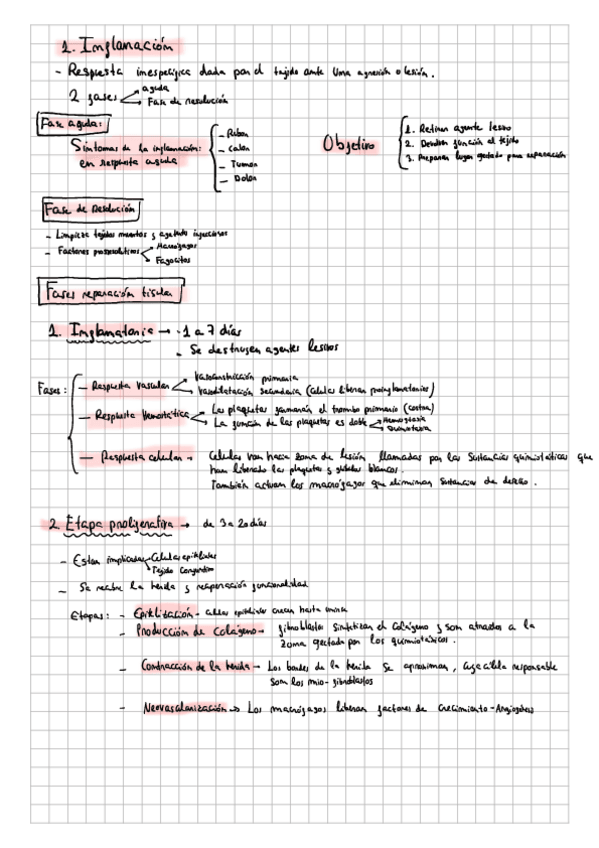 1. Inflamación
- Respuesta inespecífica dada por el tejido ante una agresión o lesión.
2 fases
aguda
Fase de resolución
Fase aguda:
Síntomas de la inflamación:
en respuesta aguda
- Rubor
- Calor
- Tumor
- Dolor
Objetivo
1. Retirar agente lesivo
2. Devolver función al tejido
3. Preparar lugar afectado para reparación
Fase de Resolución
- Limpieza tejidos muertos y agentes infecciosos
- Factores proresolutivos
Macrófagos
Fagocitos
Fases reparación tisular
1. Inflamatoria → · 1 a 7 días
- Se destruyen agentes lesivos
Fases:
- Respuesta vascular
Vasoconstricción primaria
Vasodilatación secundaria (células liberan proinflamatorios)
- Respuesta Hemostática
Las plaquetas formarán el trombo primario (costra)
La función de las plaquetas es doble
Hemostasia
Quimiotaxia
- Respuesta celular - Células van hacia zona de lesión llamadas por las sustancias quimiotácticas que
han liberado las plaquetas y glóbulos blancos.
También actúan los macrófagos que eliminan sustancias de desecho.
2. Etapa proliferativa → de 3 a 20 días
- Están implicadas
Células epiteliales
Tejido conjuntivo
- Se recubre la herida y recuperación funcionalidad
Etapas: - Epitelización - células epiteliales crecen hasta unirse
- Producción de colágeno - fibroblastos sintetizan el colágeno y son atraídos a la
zona afectada por los quimiotáxicos.
- Contracción de la herida - Los bordes de la herida se aproximan, la célula responsable
son los mio-fibroblastos
- Neovascularización → Los macrófagos liberan factores de crecimiento - Angiogénesis